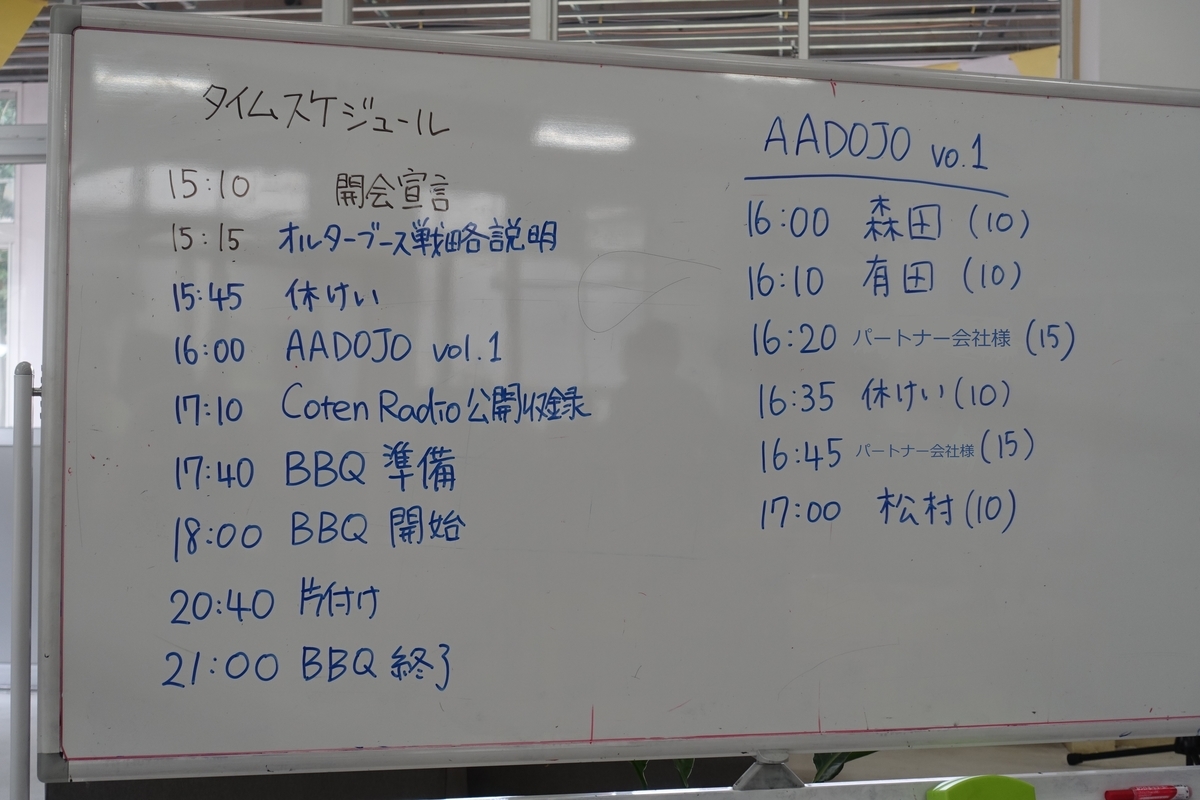 タイムスケジュール
15:10 開会宣言
15:15 オルターブース戦略説明
15:45 休けい
16:00 AADOJO vol.1
17:10 Coten Radio公開収録
17:40 BBQ 準備
18:00 BBQ 開始
20:40 片付け
21:00 BBQ 終了
AADOJO vo.1
16:00 森田 (10)
16:10 有田 (10)
16:20 パートナー会社様 (15)
16:35 休けい (10)
16:45 パートナー会社様 (15)
17:00 松村 (10)